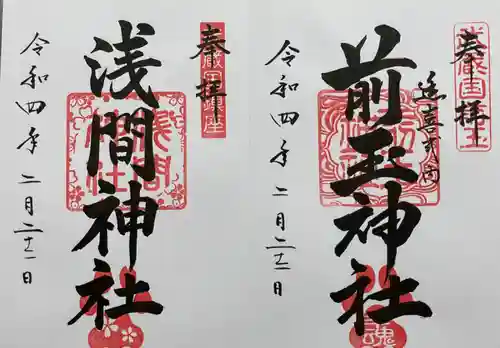 奉拝
延喜式内
前玉神社
令和四年二月二十二日
奉拝
浅間神社
令和四年二月二十二日